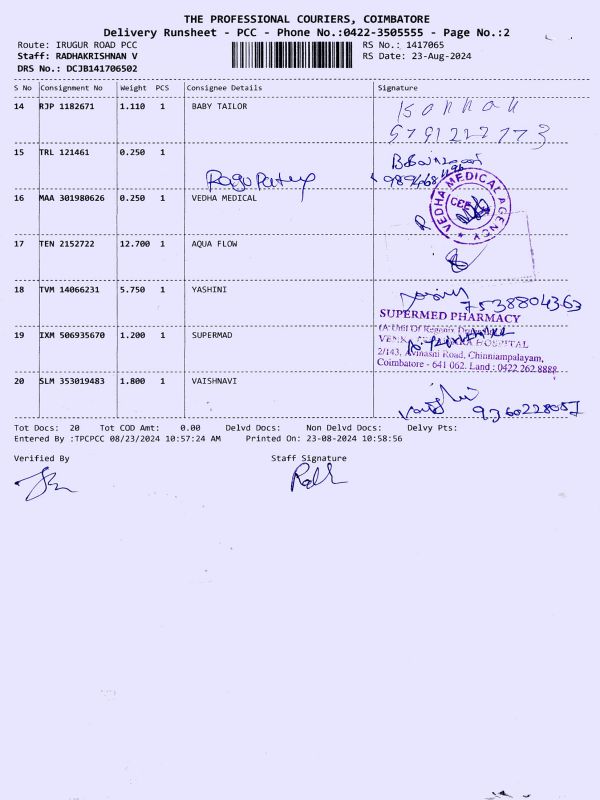 THE PROFESSIONAL COURIERS, COIMBATORE
Delivery Runsheet - PCC - Phone No.:0422-3505555 - Page No.:2
Route: IRUGUR ROAD PCC RS No.: 1417065
Staff: RADHAKRISHNAN V RS Date: 23-Aug-2024
DRS No.: DCJB141706502
S No Consignment No Weight PCS Consignee Details Signature
14 RJP 1182671 1.110 1 BABY TAILOR
5791222773
15 TRL 121461 0.250 1
16 MAA 301980626 0.250 1 VEDHA MEDICAL
VEDHA MEDICAL AGENCY
CBE
17 TEN 2152722 12.700 1 AQUA FLOW
18 TVM 14066231 5.750 1 YASHINI
7538804363
SUPERMED PHARMACY
19 IXM 506935670 1.200 1 SUPERMAD
(A Unit Of
HOSPITAL
2/143, Avinasni Road, Chinniampalayam,
Coimbatore - 641 062. Land : 0422 262 8888
20 SLM 353019483 1.800 1 VAISHNAVI
9360228057
Tot Docs: 20 Tot COD Amt: 0.00 Delvd Docs: Non Delvd Docs: Delvy Pts:
Entered By :TPCPCC 08/23/2024 10:57:24 AM Printed On: 23-08-2024 10:58:56
Verified By Staff Signature